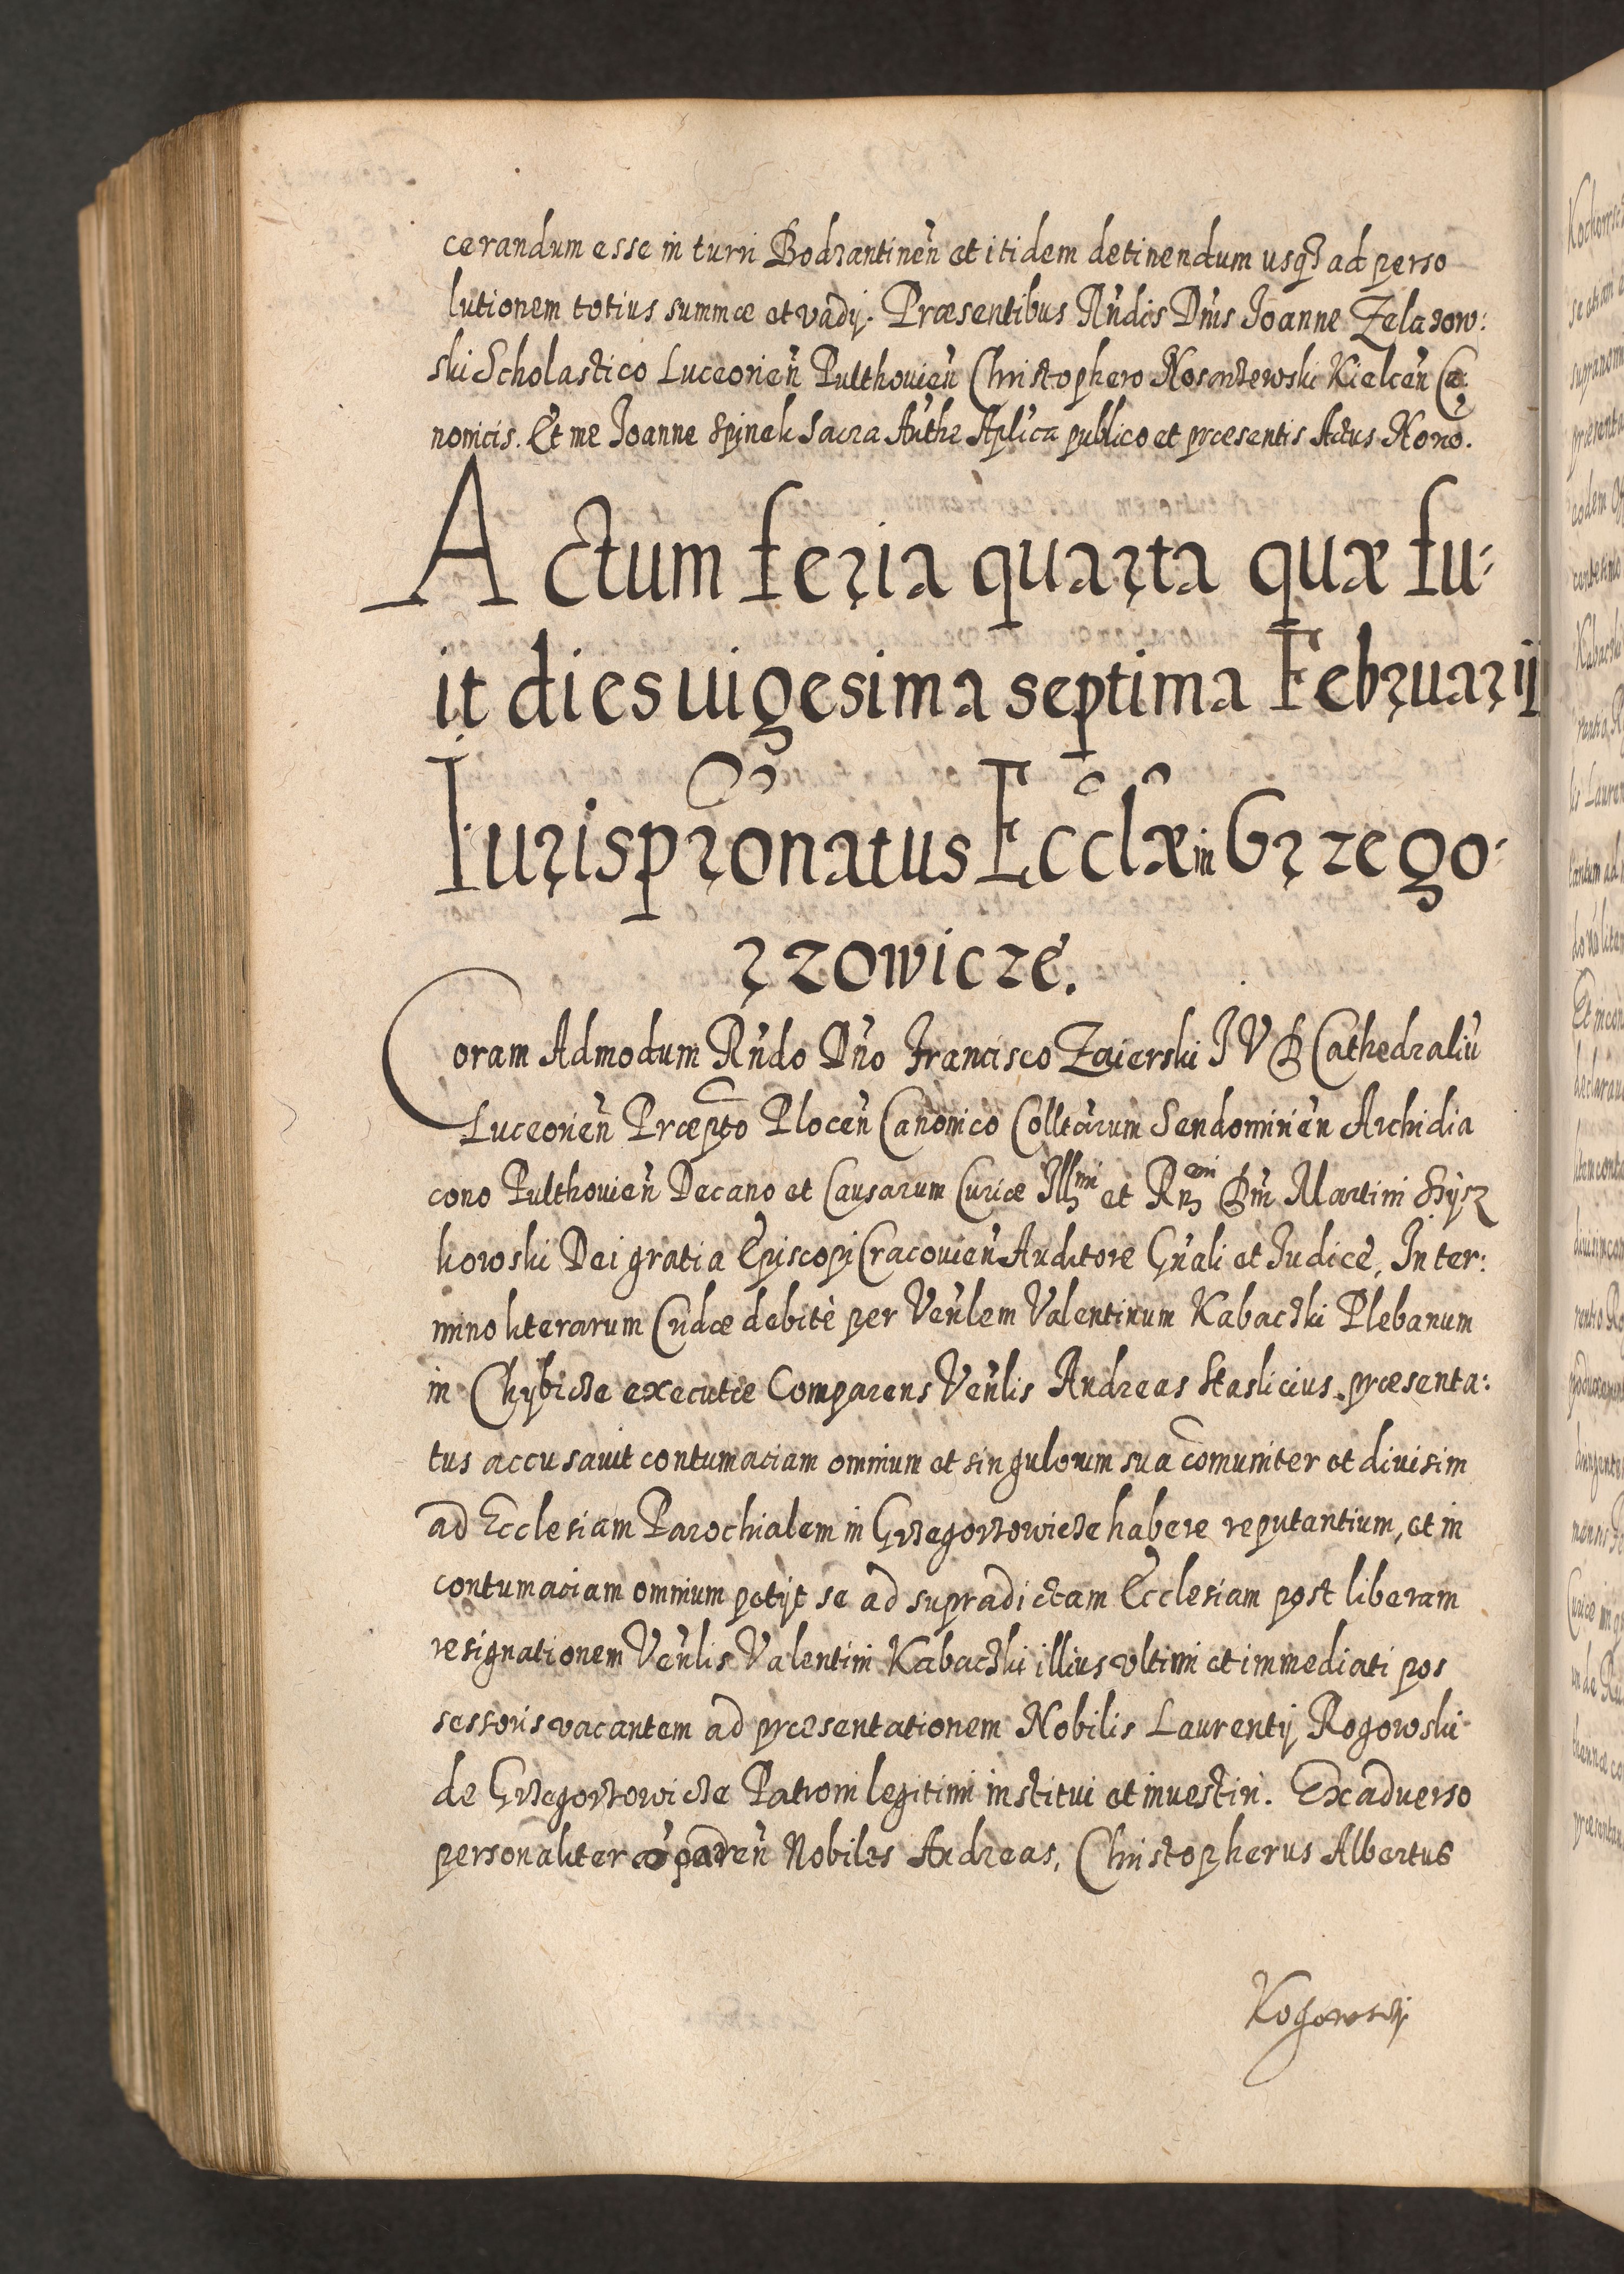 cerandum esse in turri Bodzantinen̄ et itidem detinendum usq₃ ad perso
lutionem totius summæ et vadij. Præsentibus Rn̄dis Dn̄is Joanne Zelazow:
ski Scholastico Luceorien̄ Pulthovien̄ Christophero Nosarzewski Kielcen̄ Ca:
nonicis. Et me Joanne Spinek Sacra Auth̄e Aplīca publico et præsentis Actus Nōrio.
Actum feria quarta quæ fu-
it dies uigesima septima Februarij
Jurispr̄onatus Ecclǣ in Grzego-
rzowicze.
Coram Admodum Rn̄do Dn̄o Francisco Zaierski J V D Cathedraliū
Luceorien̄ Præpt̄o Plocen̄ Canonico Colltārum Sendomirien̄ Archidia
cono Pulthovien̄ Decano et Causarum Curiæ Illmi et Rnmi Dn̄i Martini Szysz
kowski Dei gratia Episcopi Cracovien̄ Auditore Gn̄ali et Judice, In ter:
mino literarum Cridæ debitè per Ven̄lem Valentinum Kabaczki Plebanum
in Chybicze executæ Comparens Ven̄lis Andreas Staslicius præsenta:
tus accusauit contumaciam omnium et singulorum sua com̄uniter et diuisim
ad Ecclesiam Parochialem in Grzegorzowicze habere reputantium, et in
contumaciam omnium petijt se ad supradictam Ecclesiam post liberam
resignationem Ven̄lis Valentini Kabaczki illius vltimi et immediati pos
sessoris vacantem ad præsentationem Nobilis Laurentij Rogowski
de Grzegorzowicze Patroni legitimi institui et inuestiri. Ex aduerso
personaliter comparen̄ Nobiles Andreas, Christopherus Albertus
Rogowscij